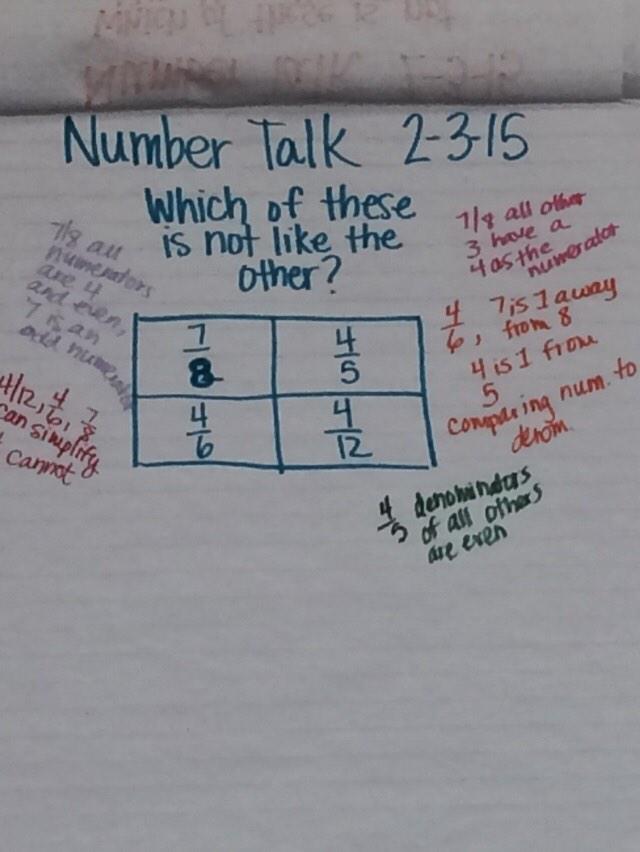 Which of these is not
Number Talk 2-3-15
Number Talk 2-3-15
Which of these
is not like the
other?
7/8 all
numerators
are 4
and even,
7 is an
odd numerator
4/12, 4/6, 7/8
can simplify
cannot
7/8 4/5
4/6 4/12
7/8 all other
3 have a
4 as the numerator
4/6, 7 is 1 away
from 8
4 is 1 from
5
comparing num. to
denom.
4/5 denominators
of all others
are even